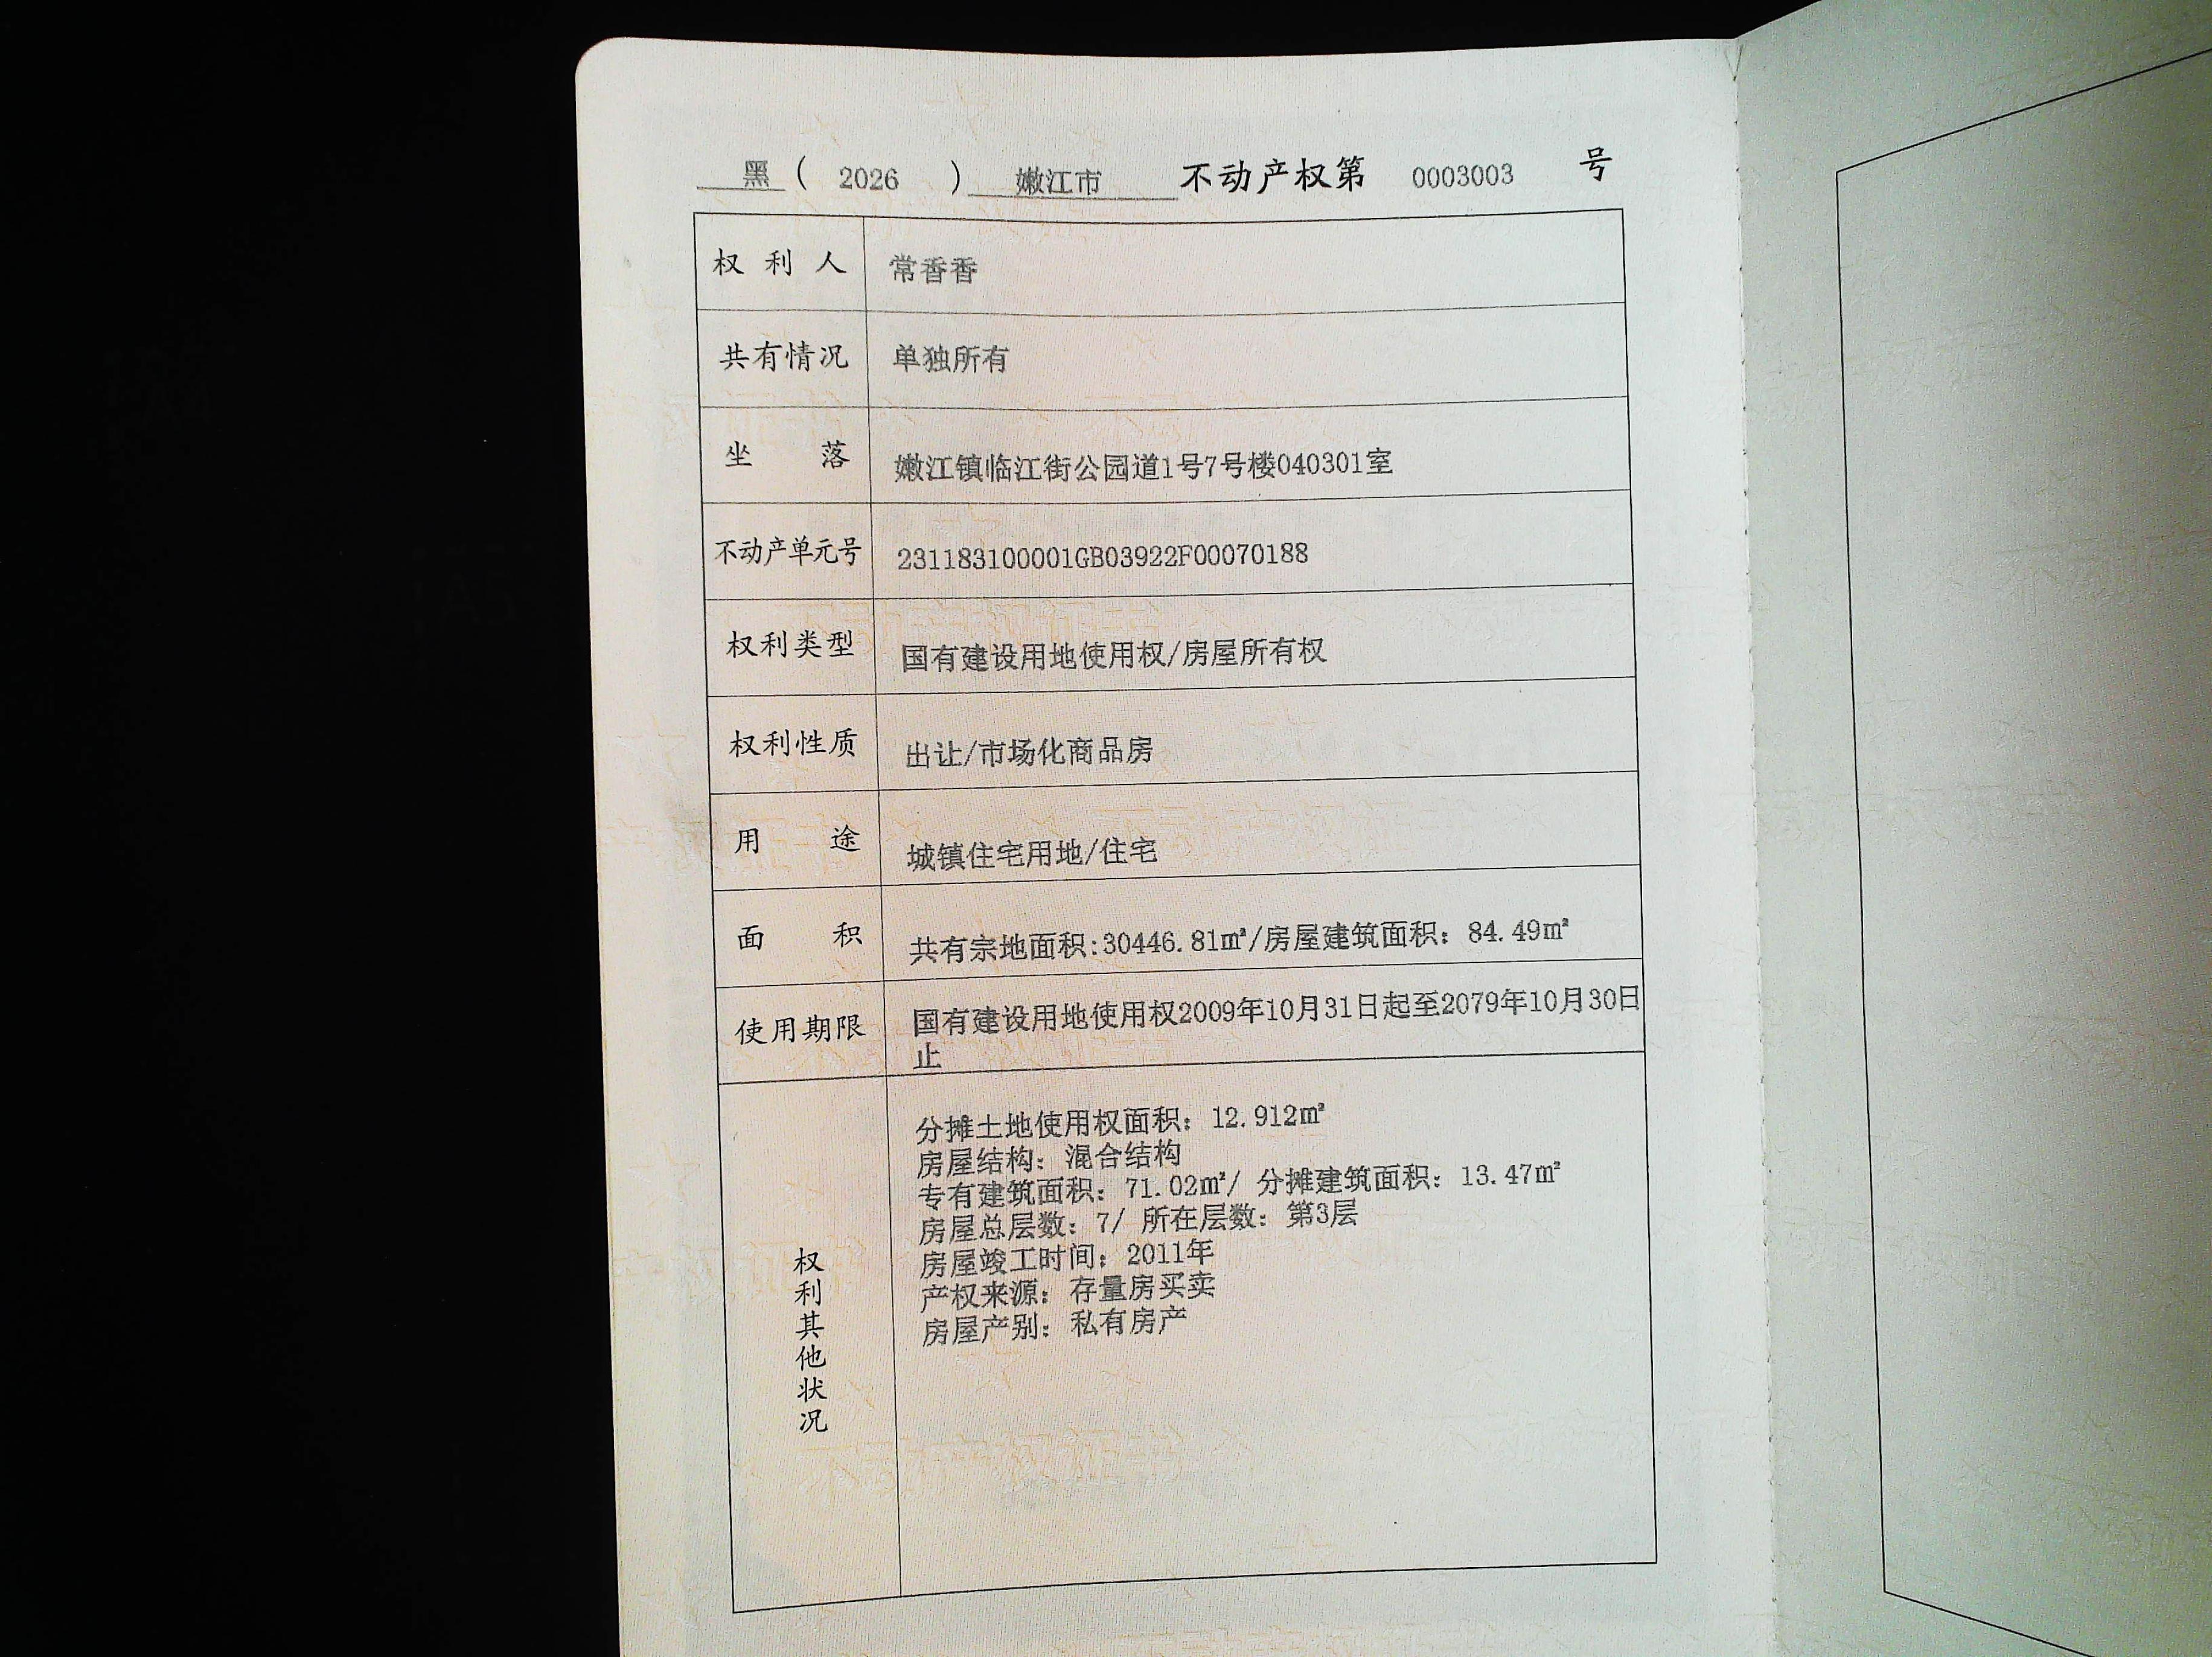 黑 ( 2026 ) 嫩江市 不动产权第 0003003 号
权利人 常香香
共有情况 单独所有
坐落 嫩江镇临江街公园道1号7号楼040301室
不动产单元号 231183100001GB03922F00070188
权利类型 国有建设用地使用权/房屋所有权
权利性质 出让/市场化商品房
用途 城镇住宅用地/住宅
面积 共有宗地面积:30446.81㎡/房屋建筑面积：84.49㎡
使用期限 国有建设用地使用权2009年10月31日起至2079年10月30日
止
权利其他状况
分摊土地使用权面积：12.912㎡
房屋结构：混合结构
专有建筑面积：71.02㎡/ 分摊建筑面积：13.47㎡
房屋总层数：7/ 所在层数：第3层
房屋竣工时间：2011年
产权来源：存量房买卖
房屋产别：私有房产